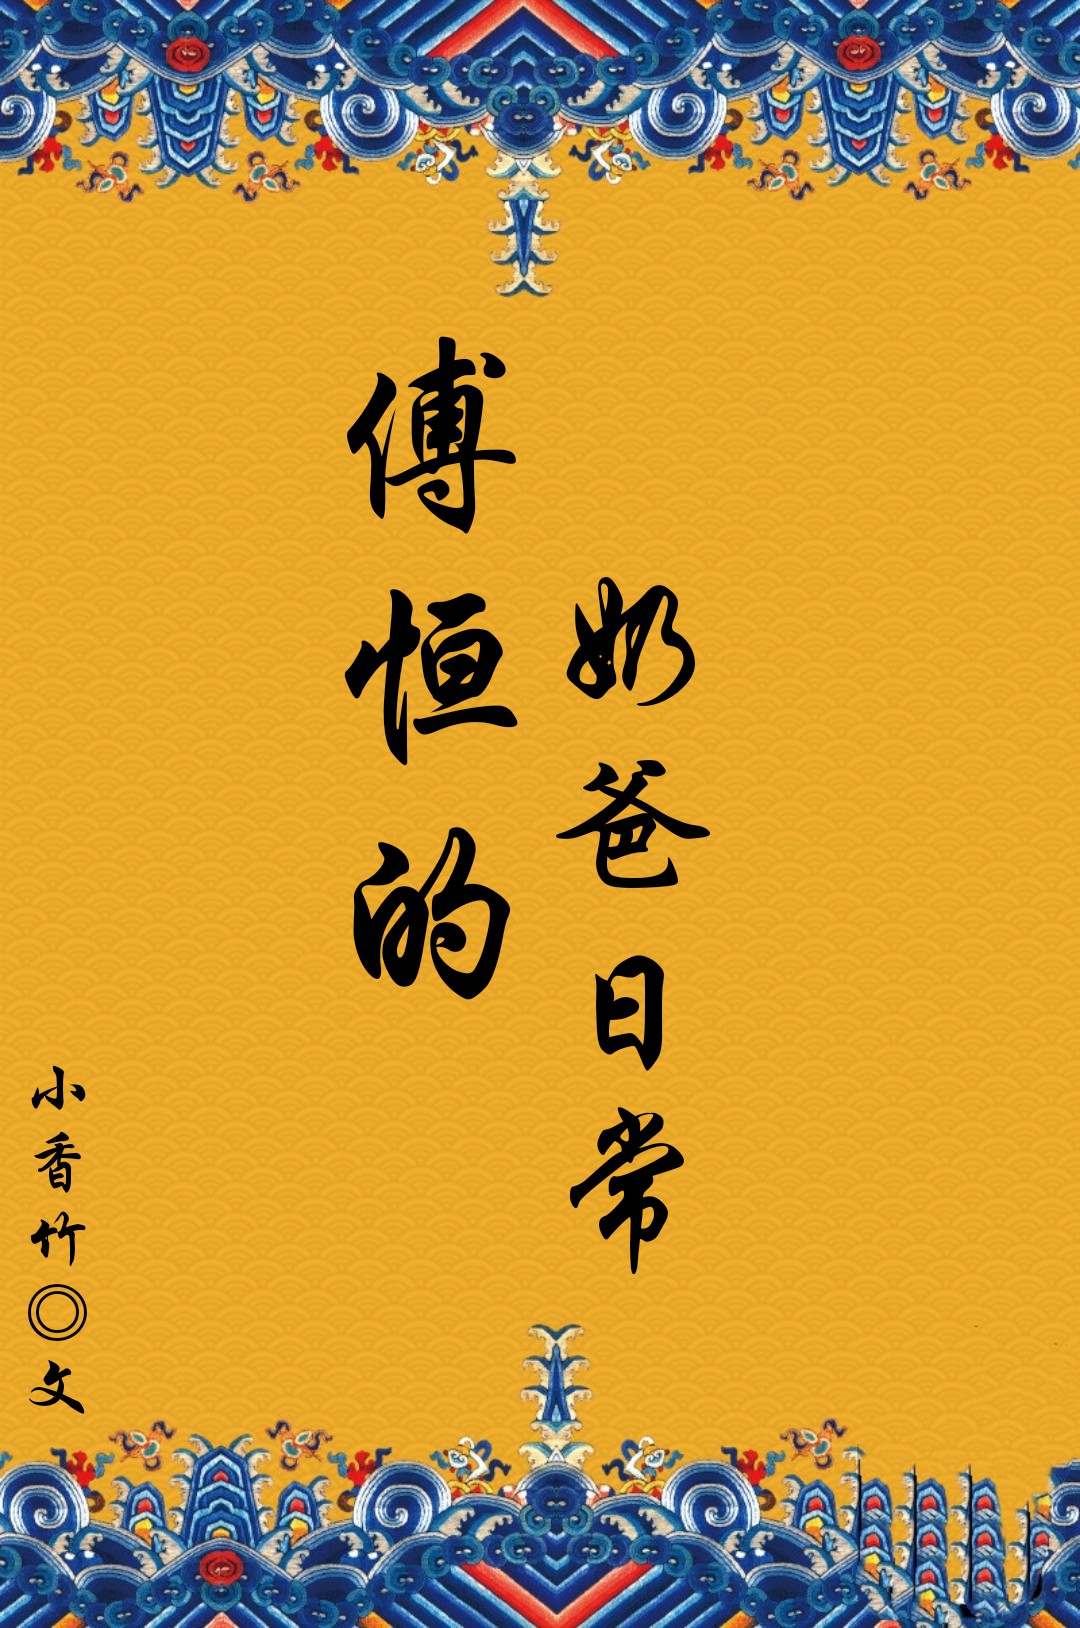 傅恒的
奶爸日常
小香竹◎文